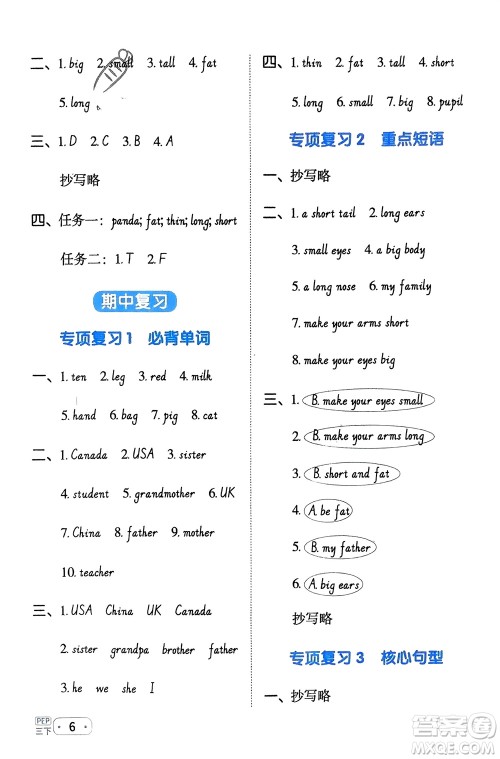 二、1. big 2. small 3. tall 4. fat
5. long
三、1. D 2. C 3. B 4. A
抄写略
四、任务一：panda; fat; thin; long; short
任务二：1. T 2. F
期中复习
专项复习1 必背单词
一、1. ten 2. leg 3. red 4. milk
5. hand 6. bag 7. pig 8. cat
二、1. Canada 2. USA 3. sister
4. student 5. grandmother 6. UK
7. China 8. father 9. mother
10. teacher
三、1. USA China UK Canada
2. sister grandpa brother father
3. he we she I
四、1. thin 2. fat 3. tall 4. short
5. long 6. small 7. big 8. pupil
专项复习2 重点短语
一、抄写略
二、1. a short tail 2. long ears
3. small eyes 4. a big body
5. a long nose 6. my family
7. make your arms short
8. make your eyes big
三、1. B. make your eyes small
2. B. make your arms long
3. B. short and fat
4. A. be fat
5. B. my father
6. A. big ears
抄写略
专项复习3 核心句型
一、抄写略
PEP
三下
6
答案圈
MXQE.COM